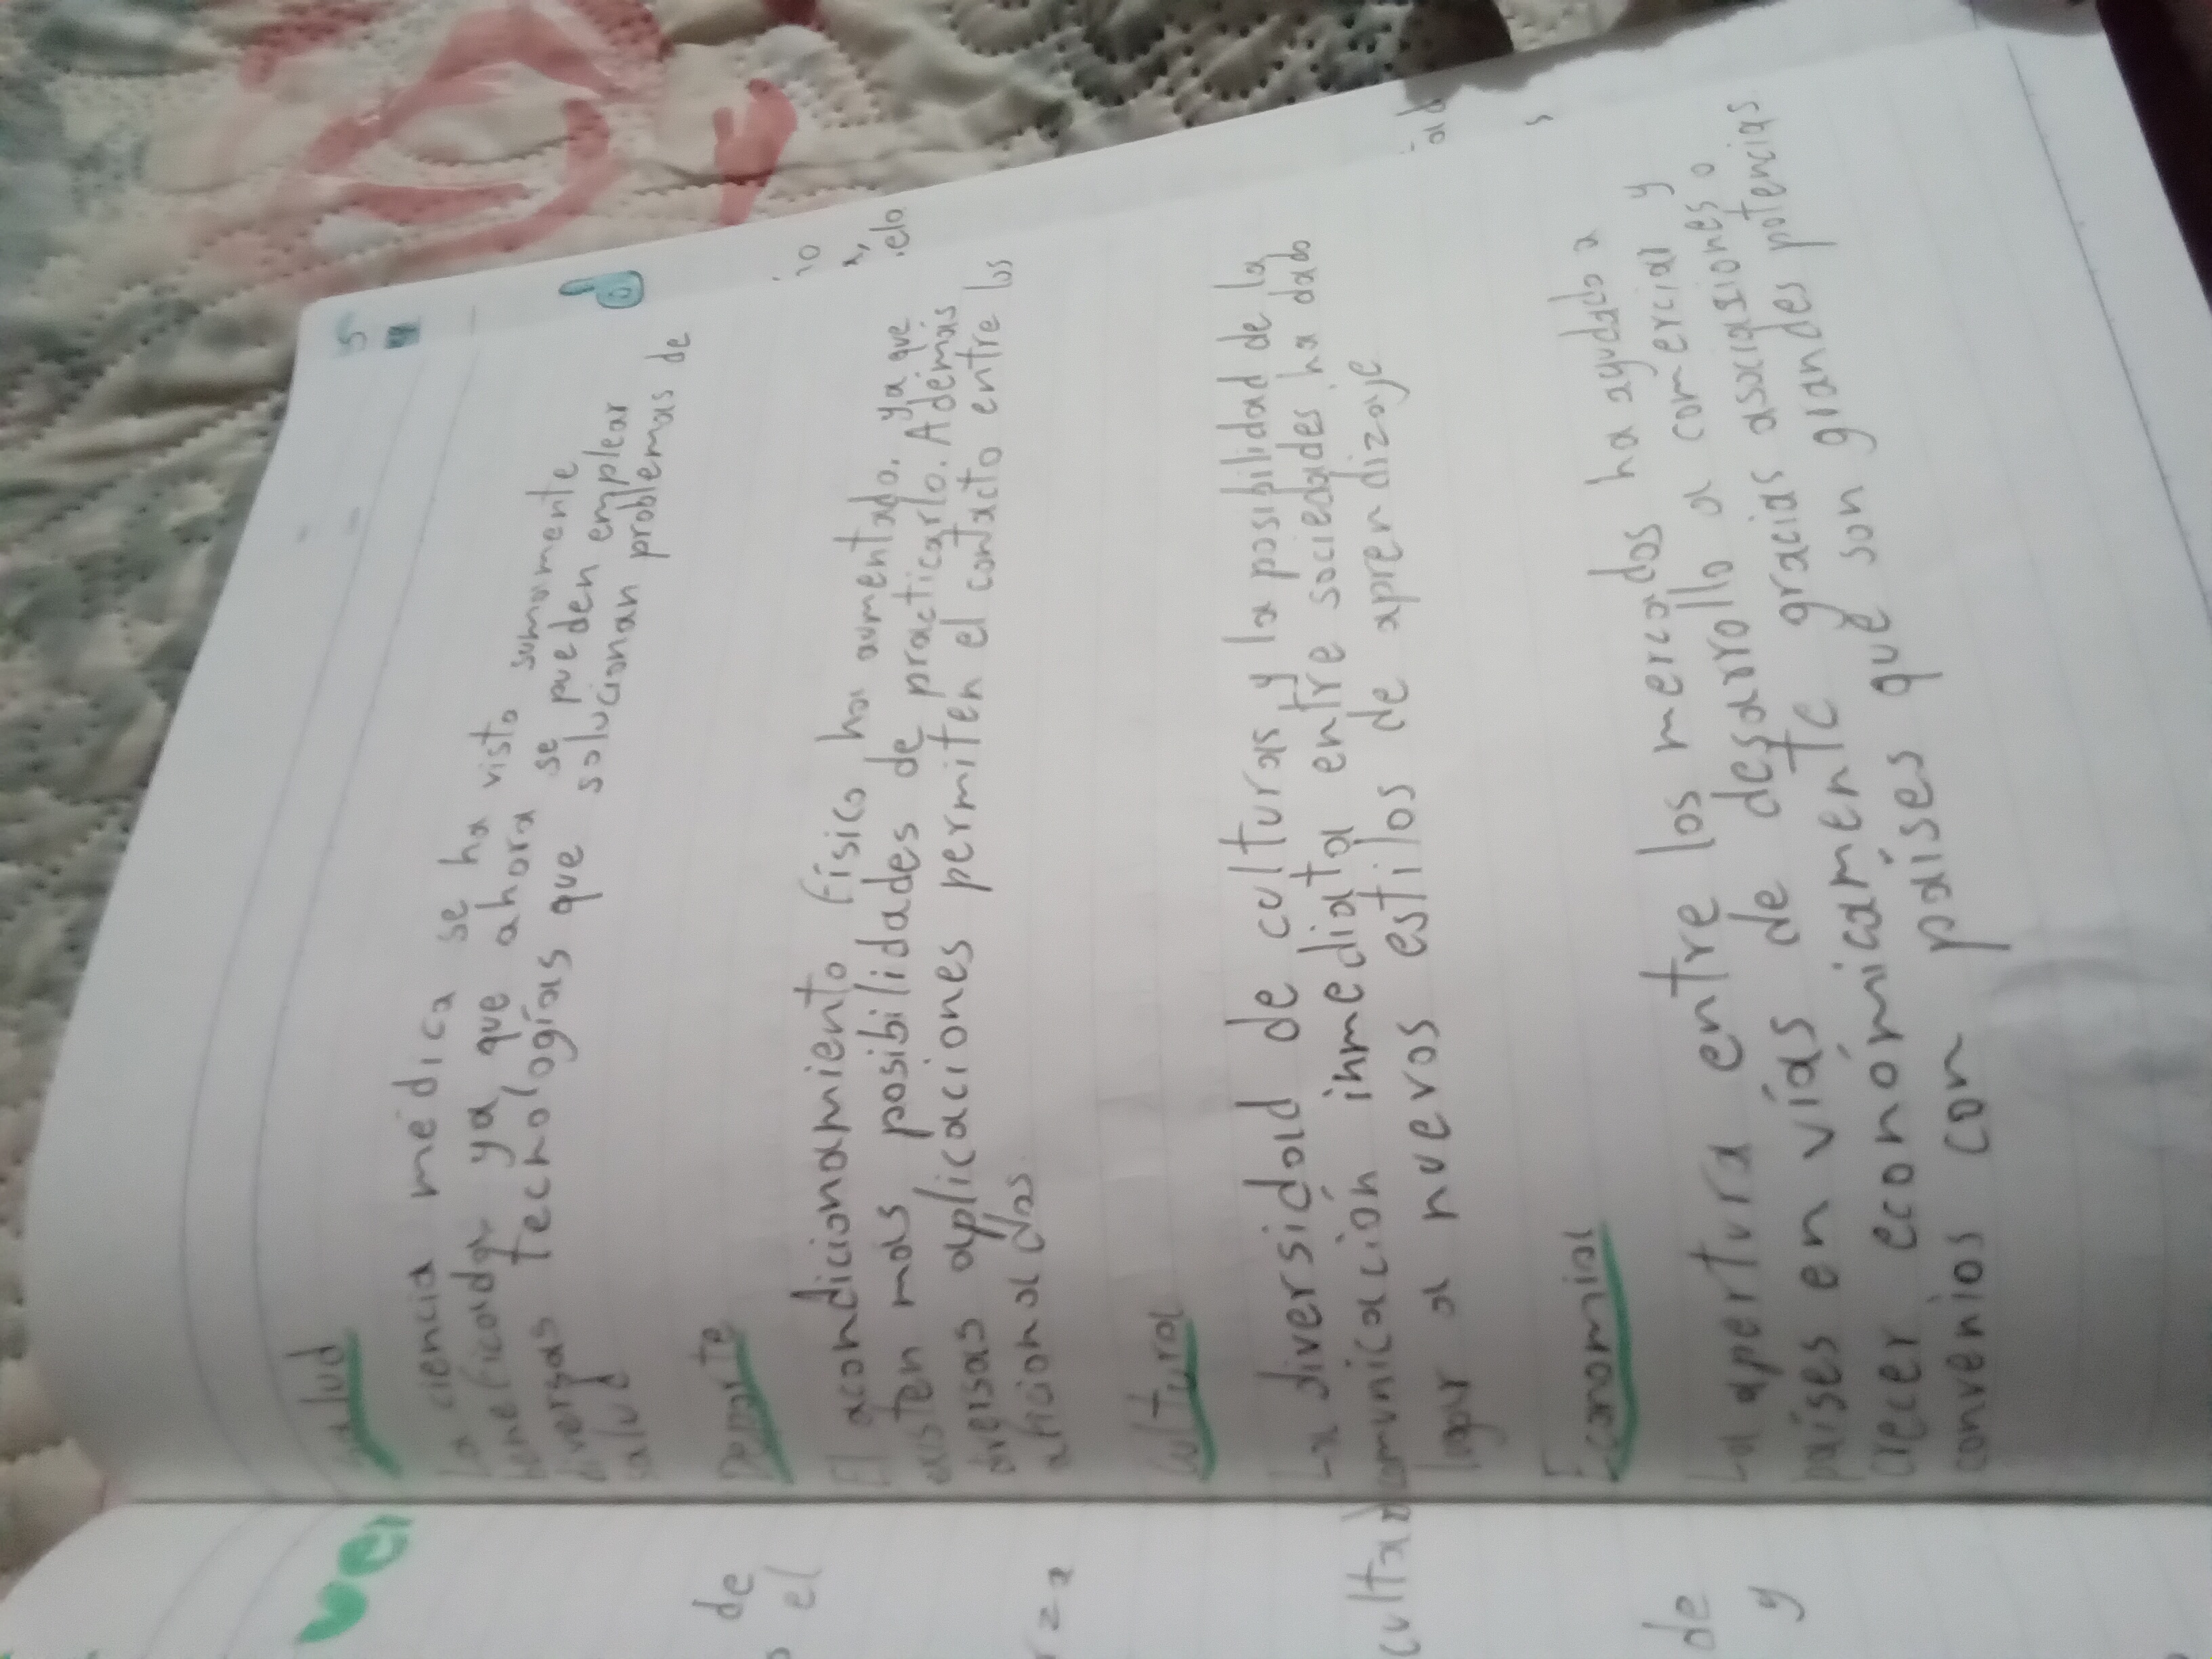 Salud
La ciencia médica se ha visto sumamente
beneficada ya que ahora se pueden emplear
diversas tecnologías que solucionan problemas de
salud
Deporte
El acondicionamiento físico ha aumentado, ya que
existen mas posibilidades de practicarlo. Además
diversas aplicaciones permiten el contacto entre los
aficionados
Cultural
La diversidad de culturas y la posibilidad de la
comunicación inmediata entre sociedades ha dado
lugar a nuevos estilos de aprendizaje
Economial
La apertura entre los mercados ha ayudado a
países en vías de desarrollo a comerciar y
crecer económicamente gracias asociasiones o
convenios con países que son grandes potencias
de
el
de
y